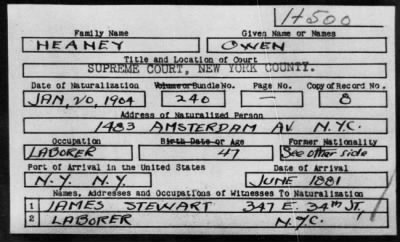 H500
Family Name Given Name or Names
HEANEY OWEN
Title and Location of Court
SUPREME COURT, NEW YORK COUNTY.
Date of Naturalization Volume or Bundle No. Page No. Copy of Record No.
JAN, 20, 1904 240 — 8
Address of Naturalized Person
1483 AMSTERDAM AV. N.Y.C.
Occupation Birth Date or Age Former Nationality
LABORER 47 See other side
Port of Arrival in the United States Date of Arrival
N.Y. N.Y. JUNE 1881
Names, Addresses and Occupations of Witnesses To Naturalization
1 JAMES STEWART 347 E. 34TH ST,
2 LABORER N.Y.C.